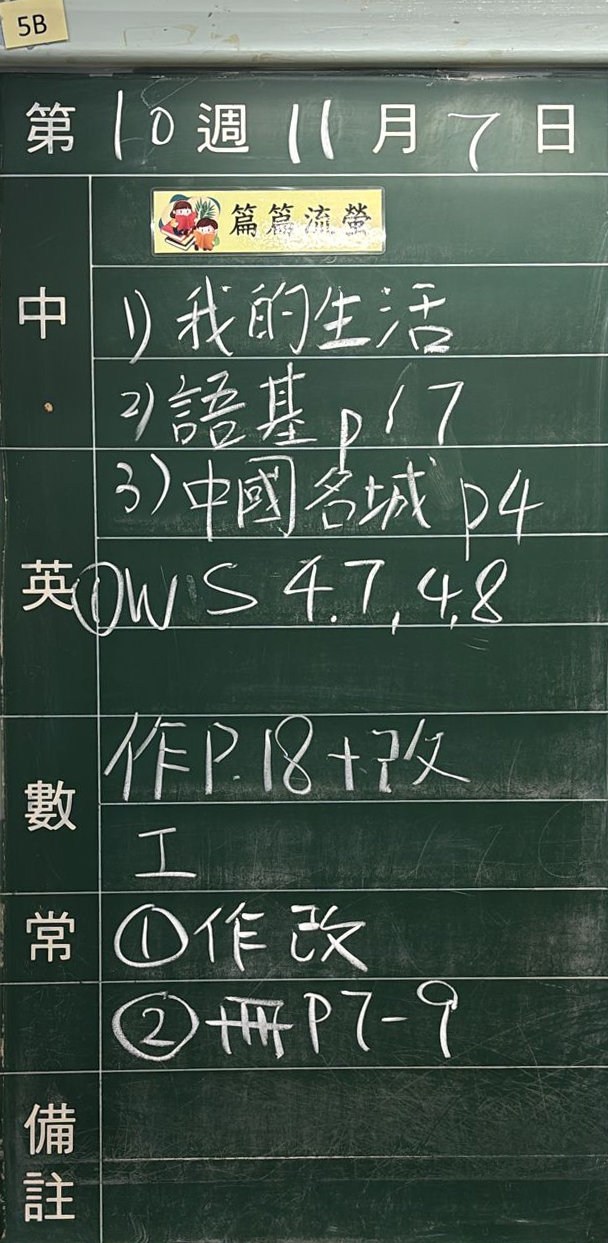 5B
第10週11月7日
中
篇篇流螢
1) 我的生活
2) 語基 p17
3) 中國名城 p4
英
① WS 4.7, 4.8
數
作P.18+改
工
常
① 作改
② 冊P7-9
備註